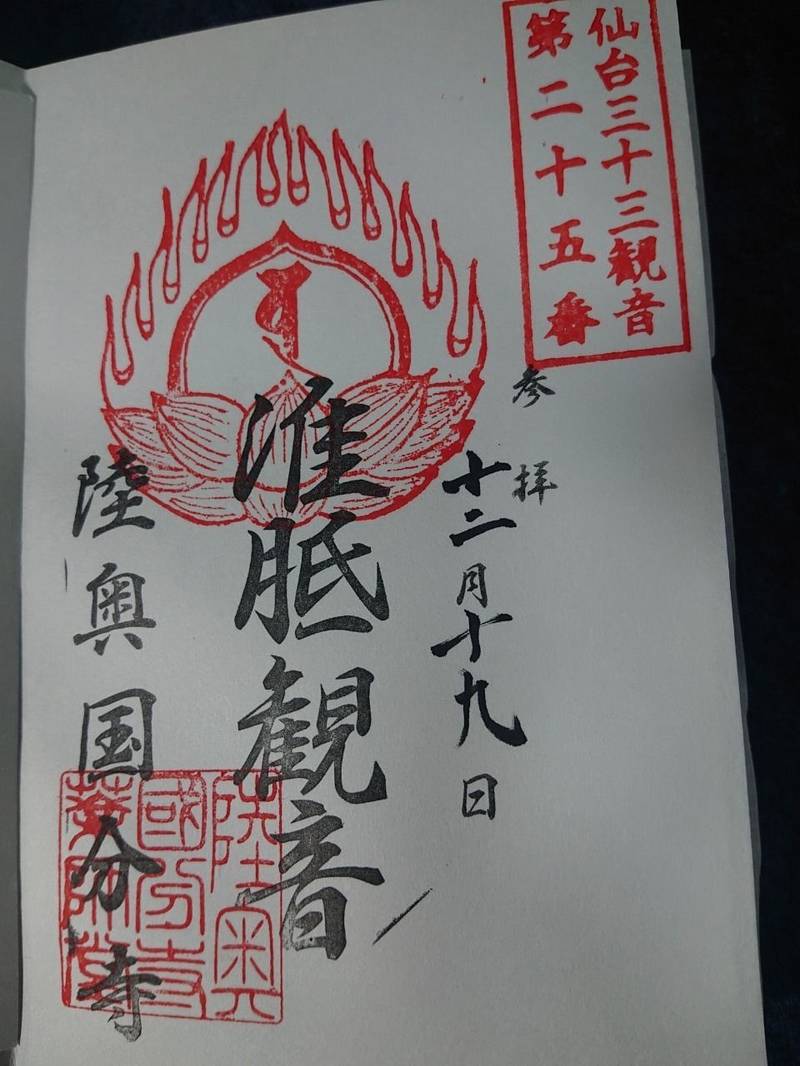 仙台三十三観音
第二十五番
参拝
十二月十九日
准胝観音
陸奥国分寺
陸奥
國分寺
薬師堂